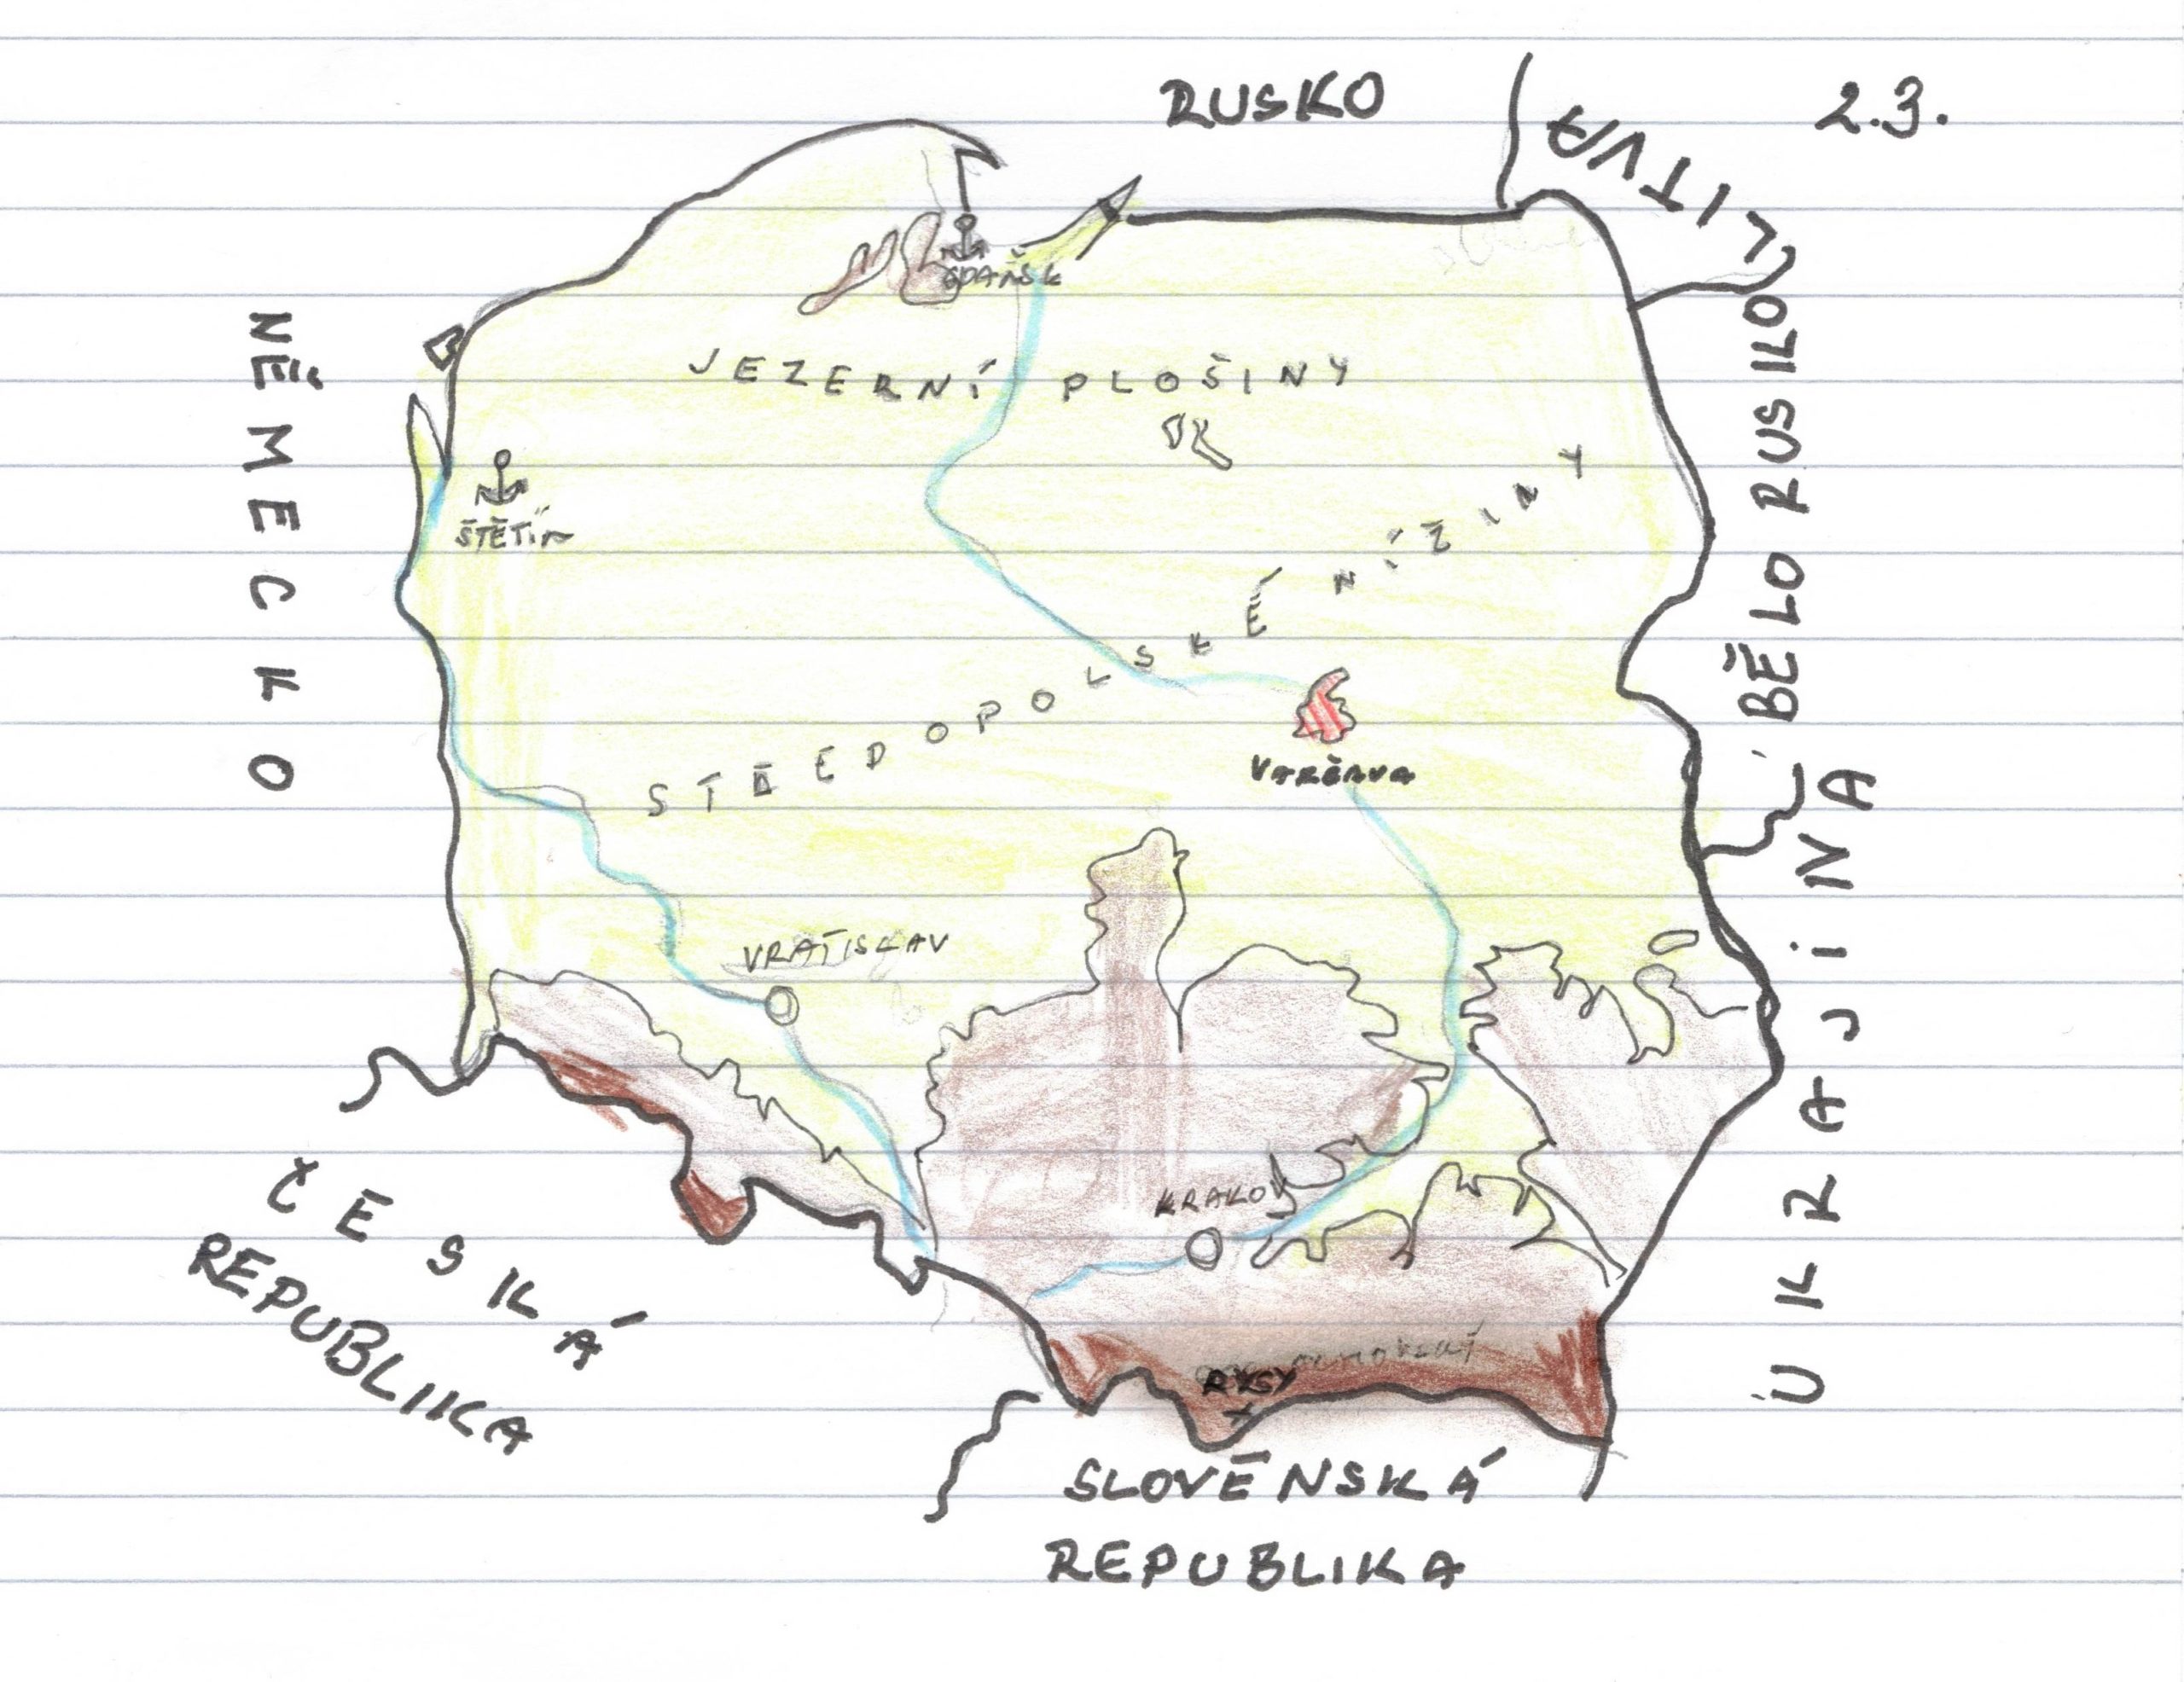 RUSKO
LITVA
2.3.
GDAŇSK
NĚMECKO
JEZERNÍ PLOŠINY
BĚLO RUSILO
ŠTĚTÍN
STŘEDOPOLSKÉ NÍŽINY
VARŠAVA
UKRAJINA
VRATISLAV
KRAKOV
ČESKÁ
REPUBLIKA
RYSY
SLOVĚNSKÁ
REPUBLIKA